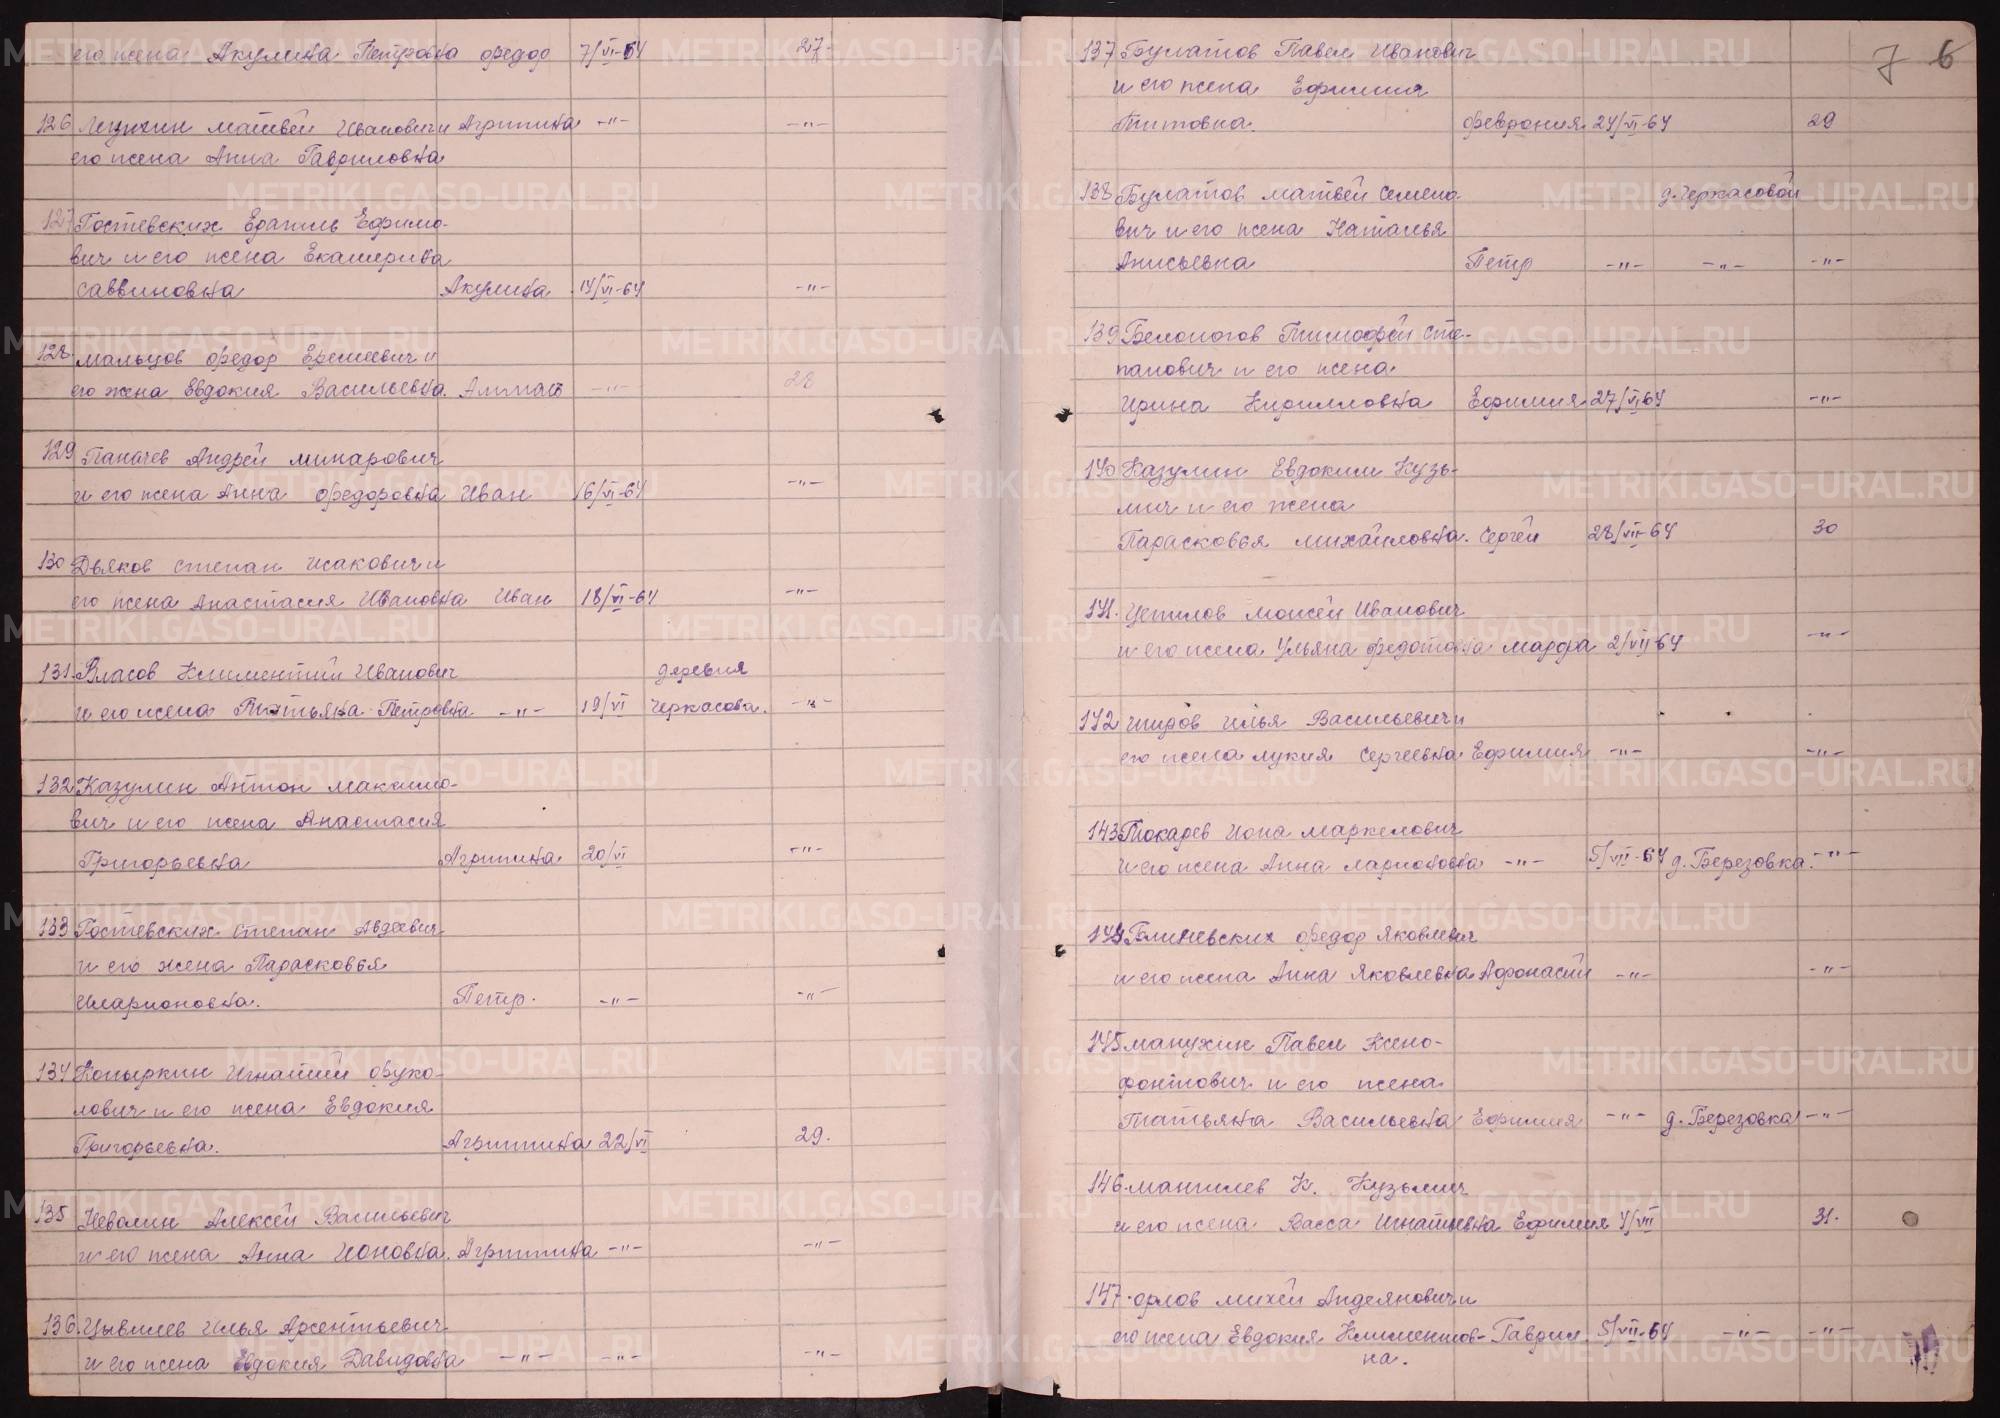 его жена Акулина Петровна Федор 7/VI-64 27-
126 Матвей Иванович и Агрипина -"- -"-
его жена Анна Гавриловна
127 Гостевских Ефимо-
вич и его жена Екатерина
Саввиновна Акулина 14/VI-64 -"-
128. Мальцов Федор Еремеевич и
его жена Евдокия Васильевна. -"- 28
129 Паначев Андрей Минарович
и его жена Анна Федоровна Иван 16/VI-64 -"-
130 Дьяков Степан Исакович и
его жена Анастасия Ивановна Иван 18/VI-64 -"-
131. Власов Климентий Иванович деревня
и его жена Татьяна Петровна -"- 19/VI Черкасова. -"-
132 Казулин Антон Максимо-
вич и его жена Анастасия
Григорьевна Агрипина 20/VI -"-
133 Гостевских Степан Авдеевич
и его жена Парасковья
Иларионовна. Петр. -"- -"-
134 Копыркин Игнатий Фуко-
лович и его жена Евдокия
Григорьевна. Агрипина 22/VI 29.
135 Неволин Алексей Васильевич
и его жена Анна Ионовна. Агрипина -"- -"-
136. Цывилев Илья Арсентьевич
и его жена Евдокия Давидовна -"- -"- -"-
7 6
137 Булатов Павел Иванович
и его жена Ефимия
Титовна. Феврония 24/VI-64 29
138 Булатов Матвей Семено- д. Черкасовой
вич и его жена Наталья
Анисьевна Петр -"- -"- -"-
139 Белоногов Тимофей Сте-
панович и его жена
Ирина Кирилловна Ефимия 27/VI 64 -"-
140 Казулин Евдоким Кузь-
мич и его жена
Парасковья Михайловна. Сергей 28/VII-64 30
141. Цепилов Моисей Иванович
и его жена Ульяна Федотовна Марфа 2/VII-64 -"-
142 Широв Илья Васильевич и
его жена Лукия Сергеевна Ефимия -"- -"-
143 Токарев Иона Маркелович
и его жена Анна Ларионовна -"- 5/VII-64 д. Березовка. -"-
144 Федор Яковлевич
и его жена Анна Яковлевна Афонасий -"- -"-
145 Манухин Павел Ксено-
фонтович и его жена
Татьяна Васильевна Ефимия -"- д. Березовка -"-
146. Мангилев К. Кузьмич
и его жена Васса Игнатьевна Ефимия 4/VII 31.
147. Орлов Михей Андеянович и
его жена Евдокия Климентов- Гаврил 5/VII-64 -"- -"-
на.
METRIKI.GASO-URAL.RU